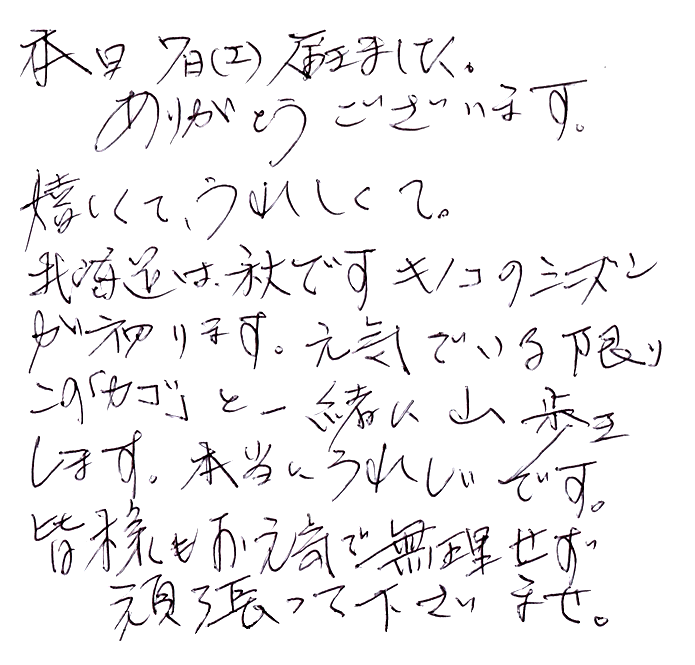 本日 7日(土) 届きました。
ありがとうございます。
嬉しくて、うれしくて。
北海道は、秋です キノコのシーズン
が初ります。元気でいる限り
この「カゴ」と一緒に山歩き
します。本当にうれしいです。
皆様もお元気で無理せず
頑張って下さいませ。